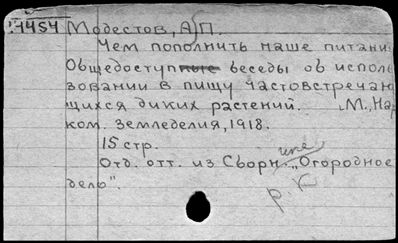 .4454 Модестов, А.П.
Чем пополнить наше питани
Общедоступные беседы об исполь
зовании в пищу частовстречаю
щихся диких растений. М., Нар
ком. земледелия, 1918.
15 стр.
Отд. отт. из Сборн. „Огородное
дело".
р. К